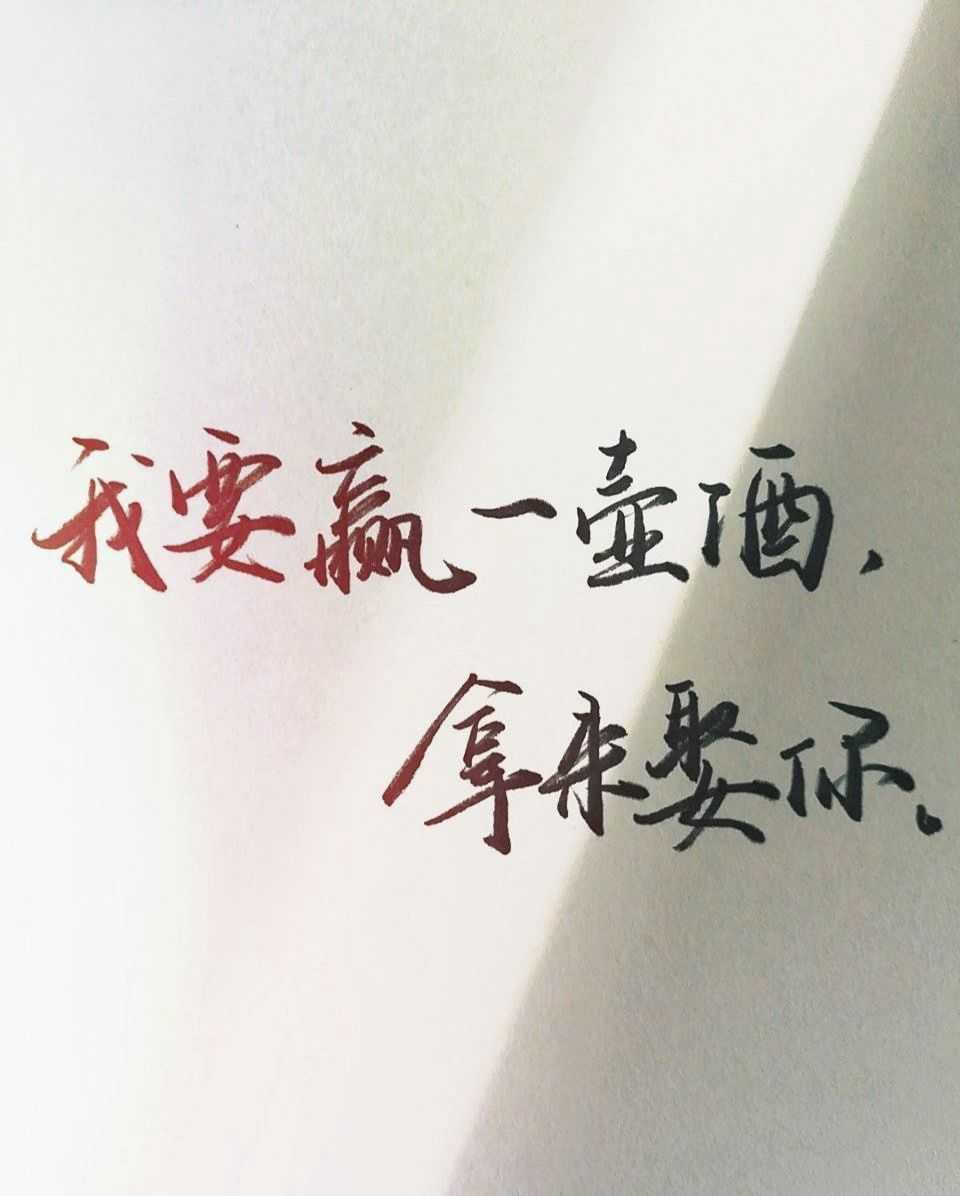 我要赢一壶酒，
拿来娶你。